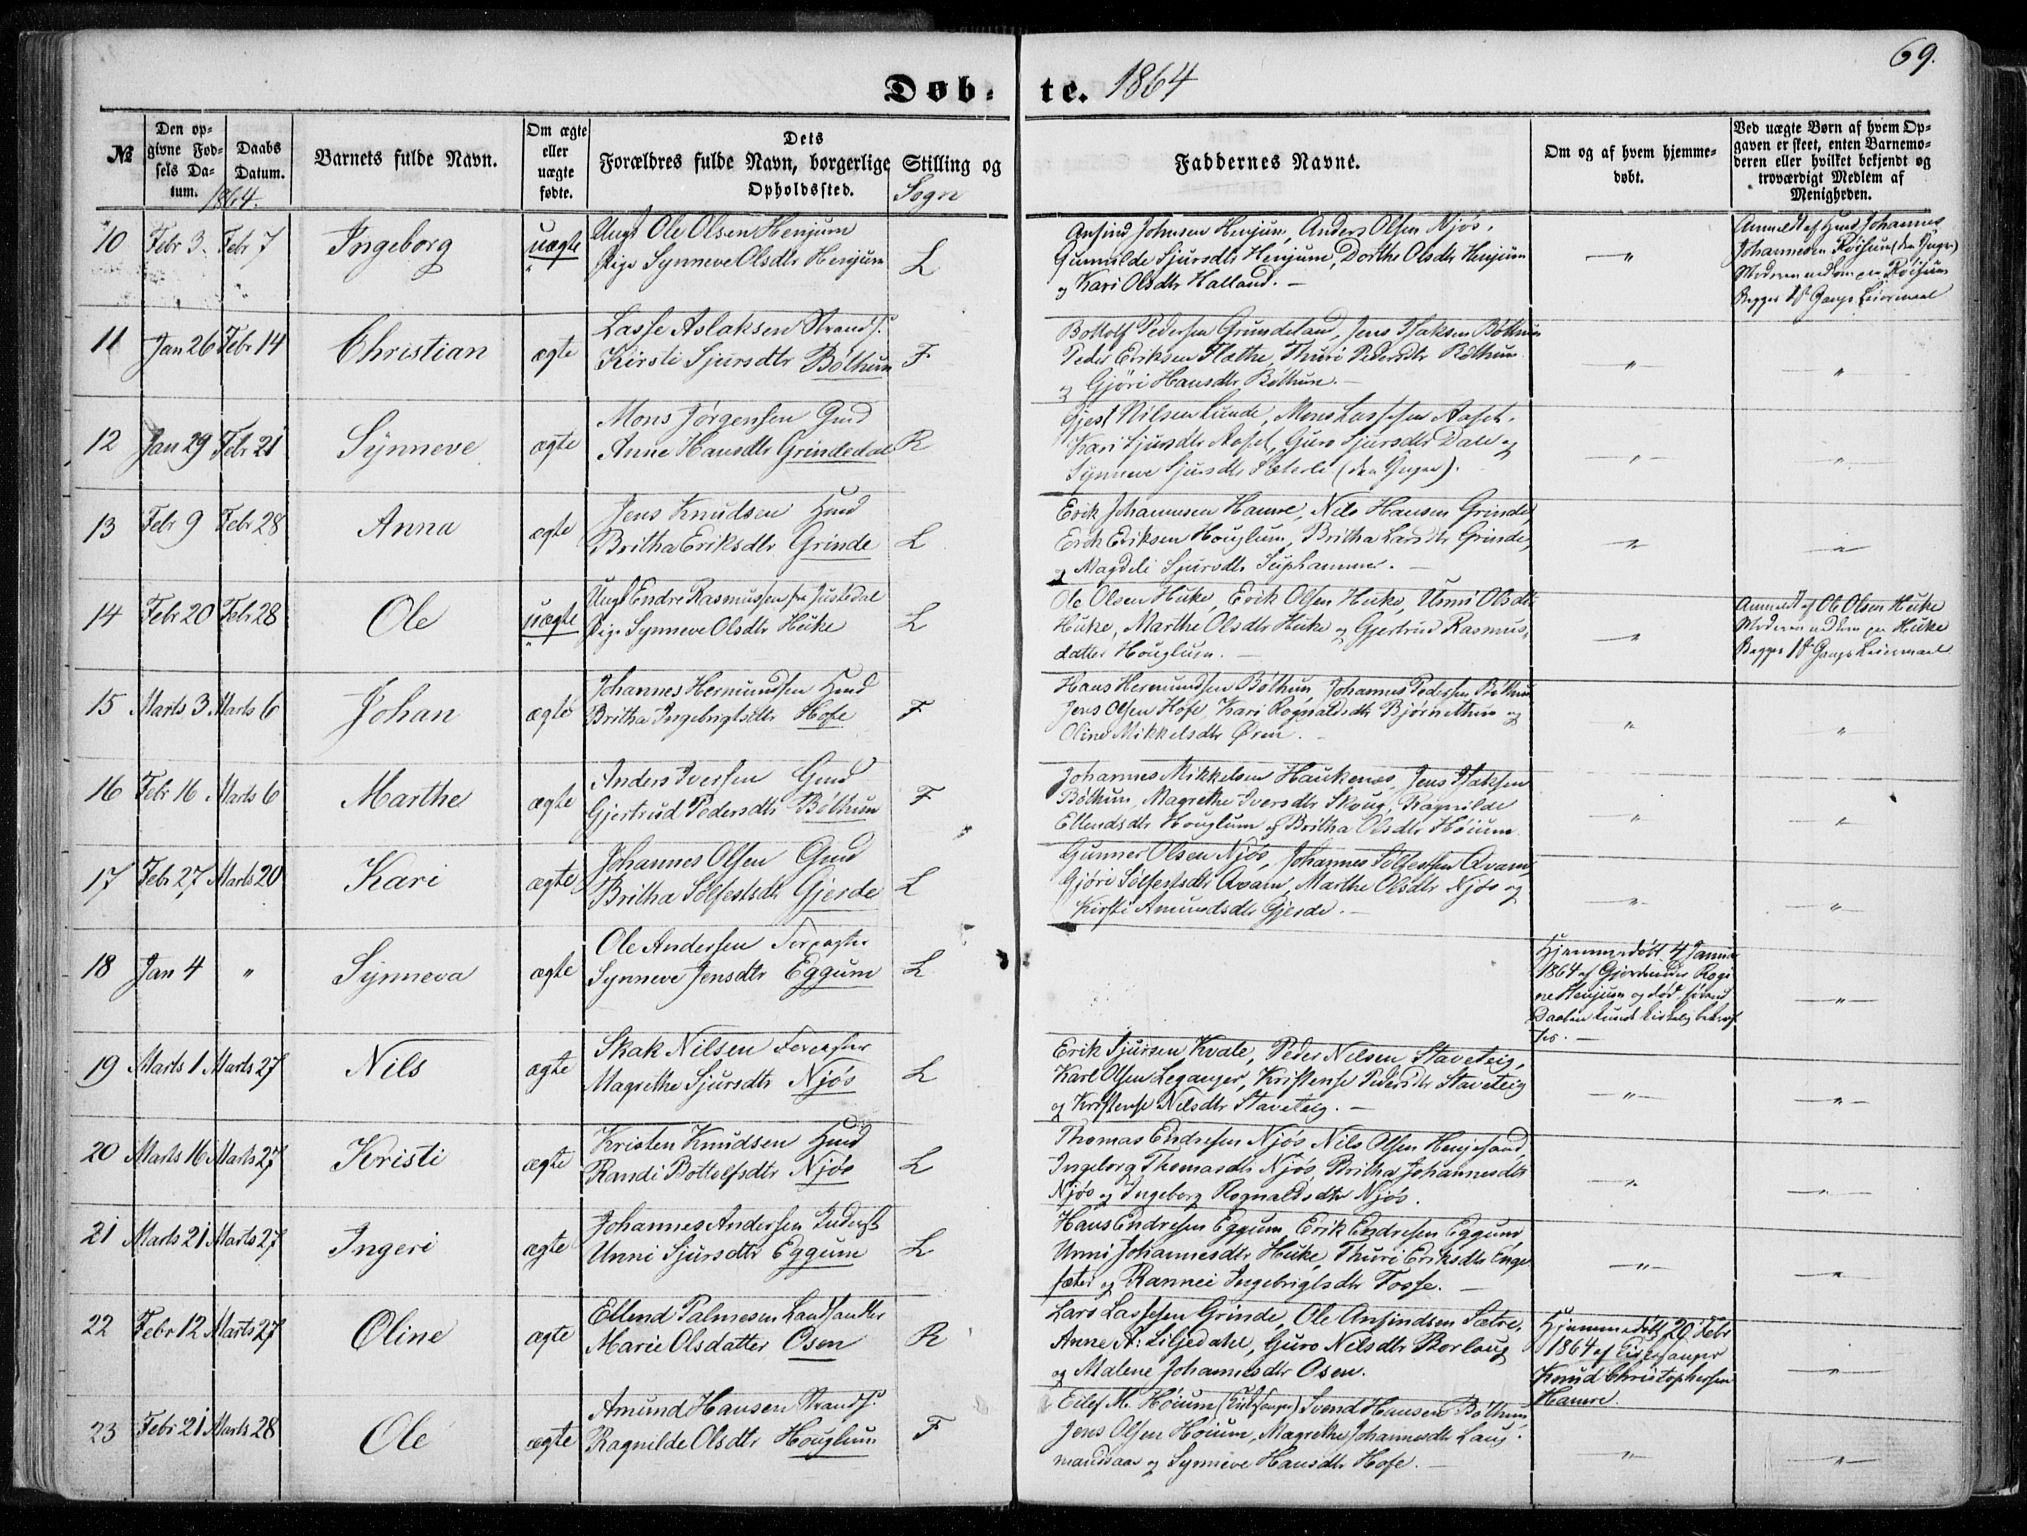 69.
Døb- te. 1864
№
Den opgivne Fødsels Datum.
Daabs Datum.
1864.
Barnets fulde Navn.
Om ægte eller uægte fødte.
Dets Forældres fulde Navn, borgerlige Stilling og Opholdssted.
Sogn
Faddernes Navne.
Om og af hvem hjemmedøbt.
Ved uægte Børn af hvem Opgaven er skeet, enten Barnemoderen eller hvilket bekjendt og troværdigt Medlem af Menigheden.
10 Febr 3. Febr 7 Ingeborg uægte
Ungk Ole Olsen Henjum
Pige Synneve Olsdtr Henjum L
Ansind Johnsen Henjum, Anders Olsen Njøs,
Gunnilde Sjursdtr Henjum, Dorthe Olsdtr Henjum
og Kari Olsdtr Halland. —
— " —
Anmeldt af Johannes
Johannesen (den Yngre)
Begges 1ste Gangs Leiermaal
11 Jan 26 Febr 14 Christian ægte
Lasse Aslaksen Strands.
Kirsti Sjursdtr Bøthun F
Bottolf Pedersen Grundeland, Jens Isaksen Bøthun
Peder Eriksen Flæthe, Thuri Pedersdtr Bøthun
og Gjøri Hansdtr Bøthun. —
— " —
— " —
12 Jan 29 Febr 21 Synneve ægte
Mons Jørgensen Gmd
Anne Hansdtr Grindedal R
Gjest Nilsen Lunde, Mons Lassesen Aaset,
Kari Sjursdtr Aaset, Guro Sjursdtr Dale og
Synneve Sjursdtr Sæterli (den Yngre).
— " —
— " —
13 Febr 9 Febr 28 Anna ægte
Jens Knudsen Hmd
Britha Eriksdtr Grinde L
Erik Johannesen Hamre, Nils Hansen Grinde,
Erik Eriksen Houglum, Britha Larsdtr Grinde,
og Magdeli Sjursdtr Suphammer. —
— " —
— " —
14 Febr 20 Febr 28 Ole uægte
Ungk Endre Rasmussen fra Justedal
Pige Synneve Olsdtr Huke L
Ole Olsen Huke, Erik Olsen Huke, Unni Olsdtr
Huke, Marthe Olsdtr Huke og Gjertrud Rasmus-
datter Houglum. —
— " —
Anmeldt af Ole Olsen Huke
Begges 1ste Gangs Leiermaal
15 Marts 3 Marts 6 Johan ægte
Johannes Hermundsen Hmd
Britha Ingebrigtsdtr Hofe F
Hans Hermundsen Bøthun, Johannes Pedersen Bøthun
Jens Olsen Hofe, Kari Rognaldsdtr Bjørnethun og
Oline Mikkelsdtr Øren. —
— " —
— " —
16 Febr 16 Marts 6 Marthe ægte
Anders Iversen Gmd
Gjertrud Pedersdtr Bøthun F
Johannes Mikkelsen Haukenæs, Jens Isaksen
Bøthun, Magrethe Iversdtr Skoug, Ragnilde
Ellendsdtr Houglum og Britha Olsdtr Høium.
— " —
— " —
17 Febr 27 Marts 20 Kari ægte
Johannes Olsen Gmd
Britha Sølfestsdtr Gjerde L
Gunner Olsen Njøs, Johannes Sølfestsen Qvam,
Gjøri Sølfestsdtr Qvam, Marthe Olsdtr Njøs og
Kirsti Amundsdtr Gjerde. —
— " —
— " —
18 Jan 4 " Synneva ægte
Ole Andersen Forpagter
Synneve Jensdtr Eggum L
Hjemmedøbt 4 Januar
1864 af Gjordemoder Regi-
ne Henjum og død, førend
Daaben kunde kirkelig bekræf-
tes. —
— " —
19 Marts 1 Marts 27 Nils ægte
Skak Nilsen Forpagter
Magrethe Sjursdtr Njøs L
Erik Sjursen Kvale, Peder Nilsen Staveteig,
Karl Olsen Leganger, Kristense Pedersdtr Staveteig
og Kristense Nilsdtr Staveteig. —
— " —
— " —
20 Marts 16 Marts 27 Kristi ægte
Kristen Knudsen Hmd
Randi Bottolfsdtr Njøs L
Thomas Endresen Njøs, Nils Olsen Henjesand,
Ingeborg Thomasdtr Njøs, Britha Johannesdtr
Njøs og Ingeborg Rognaldsdtr Njøs.
— " —
— " —
21 Marts 21 Marts 27 Ingeri ægte
Johannes Andersen Inderst
Unni Sjursdtr Eggum L
Hans Endresen Eggum, Erik Endresen Eggum,
Unni Johannesdtr Huke, Thuri Eriksdtr Enge-
sæter og Rannei Ingebrigtsdtr Fosse. —
— " —
— " —
22 Febr 12 Marts 27 Oline ægte
Ellend Palmesen Landhandler
Marie Olsdatter Osen R
Lars Lassesen Grinde, Ole Ansindsen Sætre,
Anne A: Liljedahl, Guro Nilsdtr Borlaug
og Malene Johannesdtr Osen.
Hjemmedøbt 20 Febr
1864 af Kirkesanger
Knud Christophersen
Hamre.
— " —
23 Febr 21 Marts 28 Ole ægte
Amund Hansen Strands.
Ragnilde Olsdtr Houglum F
Eilef M. Høium (Kirkesanger) Svend Hansen Bøthun
Jens Olsen Høium, Magrethe Johannesdtr Laug-
mandsaas og Synneve Hansdtr Hofe. —
— " —
— " —